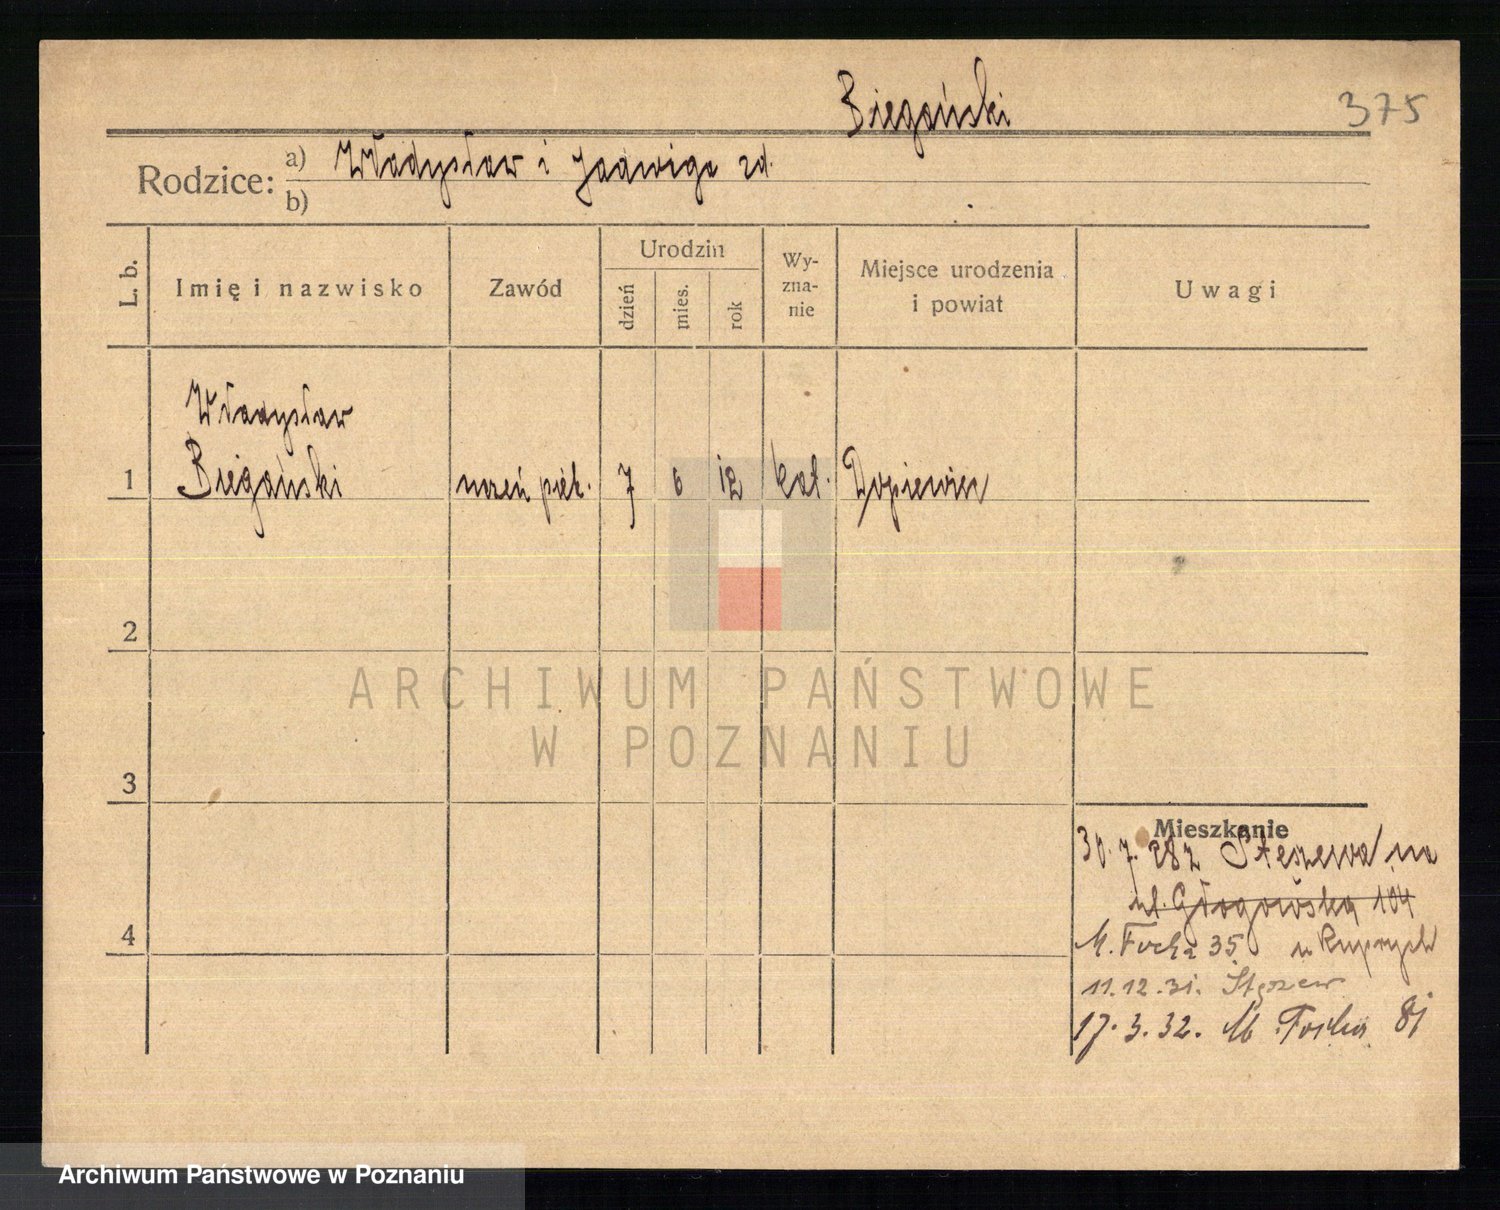 Biegański
375
Rodzice: a) Władysław i Jadwiga zd.
b)
L. b.
Imię i nazwisko
Zawód
Urodzin
dzień
mies.
rok
Wy-
zna-
nie
Miejsce urodzenia
i powiat
Uwagi
Władysław
1 Biegański uczeń piek. 7 6 12 kat. Dopiewiec
2
ARCHIWUM PAŃSTWOWE
W POZNANIU
3
Mieszkanie
30.7.28 z Stęszewa na
ul. Głogowska 104
4
M. Focha 35 u
11.12.31. Stęszew
17.3.32. M Focha
Archiwum Państwowe w Poznaniu